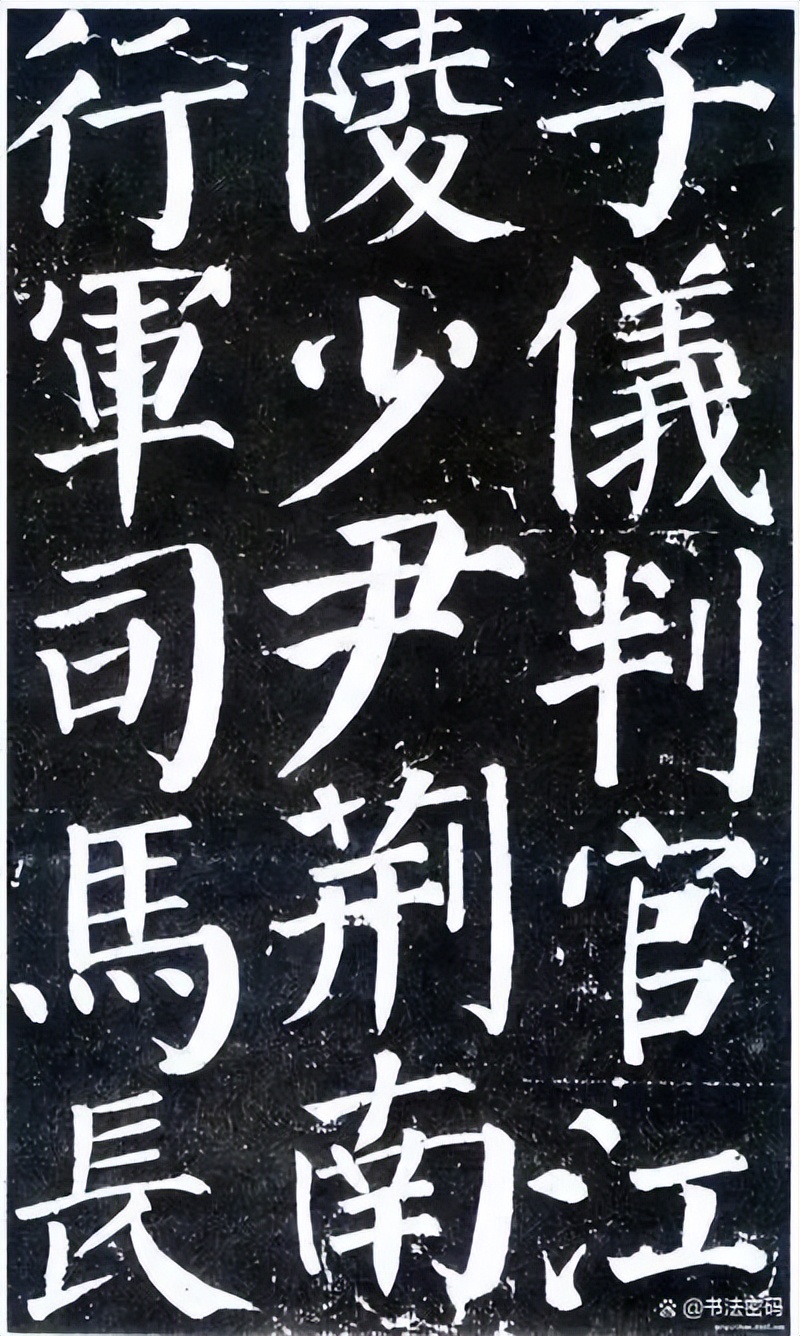 子儀判官江
陵少尹荆南
行軍司馬長
@书法密码